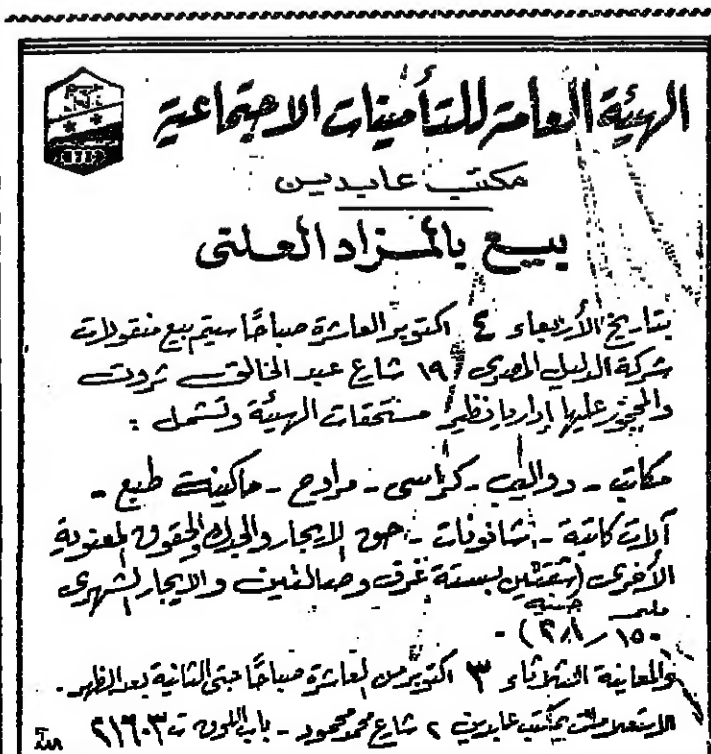 الهيئة العامة للتأمينات الاجتماعية
مكتب عابدين
بيع بالمزاد العلنى
بتاريخ الأربعاء ٤ اكتوبر العاشرة صباحًا سيتم بيع منقولات
شركة الدليل المصرى ١٩ شارع عبد الخالق ثروت
والمحجوز عليها إداريا نظير مستحقات الهيئة وتشمل :
مكاتب - دواليب - كراسى - مراوح - ماكينة طبع -
آلات كاتبة - شانونات - حق الإيجار والجدك والحقوق المعنوية
الأخرى (شقتين بستة غرف وصالتين والايجار الشهرى
مليم جنيه
١٥٠ / ٢٨) -
والمعاينة الثلاثاء ٣ اكتوبر من العاشرة صباحًا حتى الثانية بعد الظهر .
الاستعلامات بمكتب عابدين ٢ شارع محمد محمود - باب اللوق ت ٢١٦٠٣